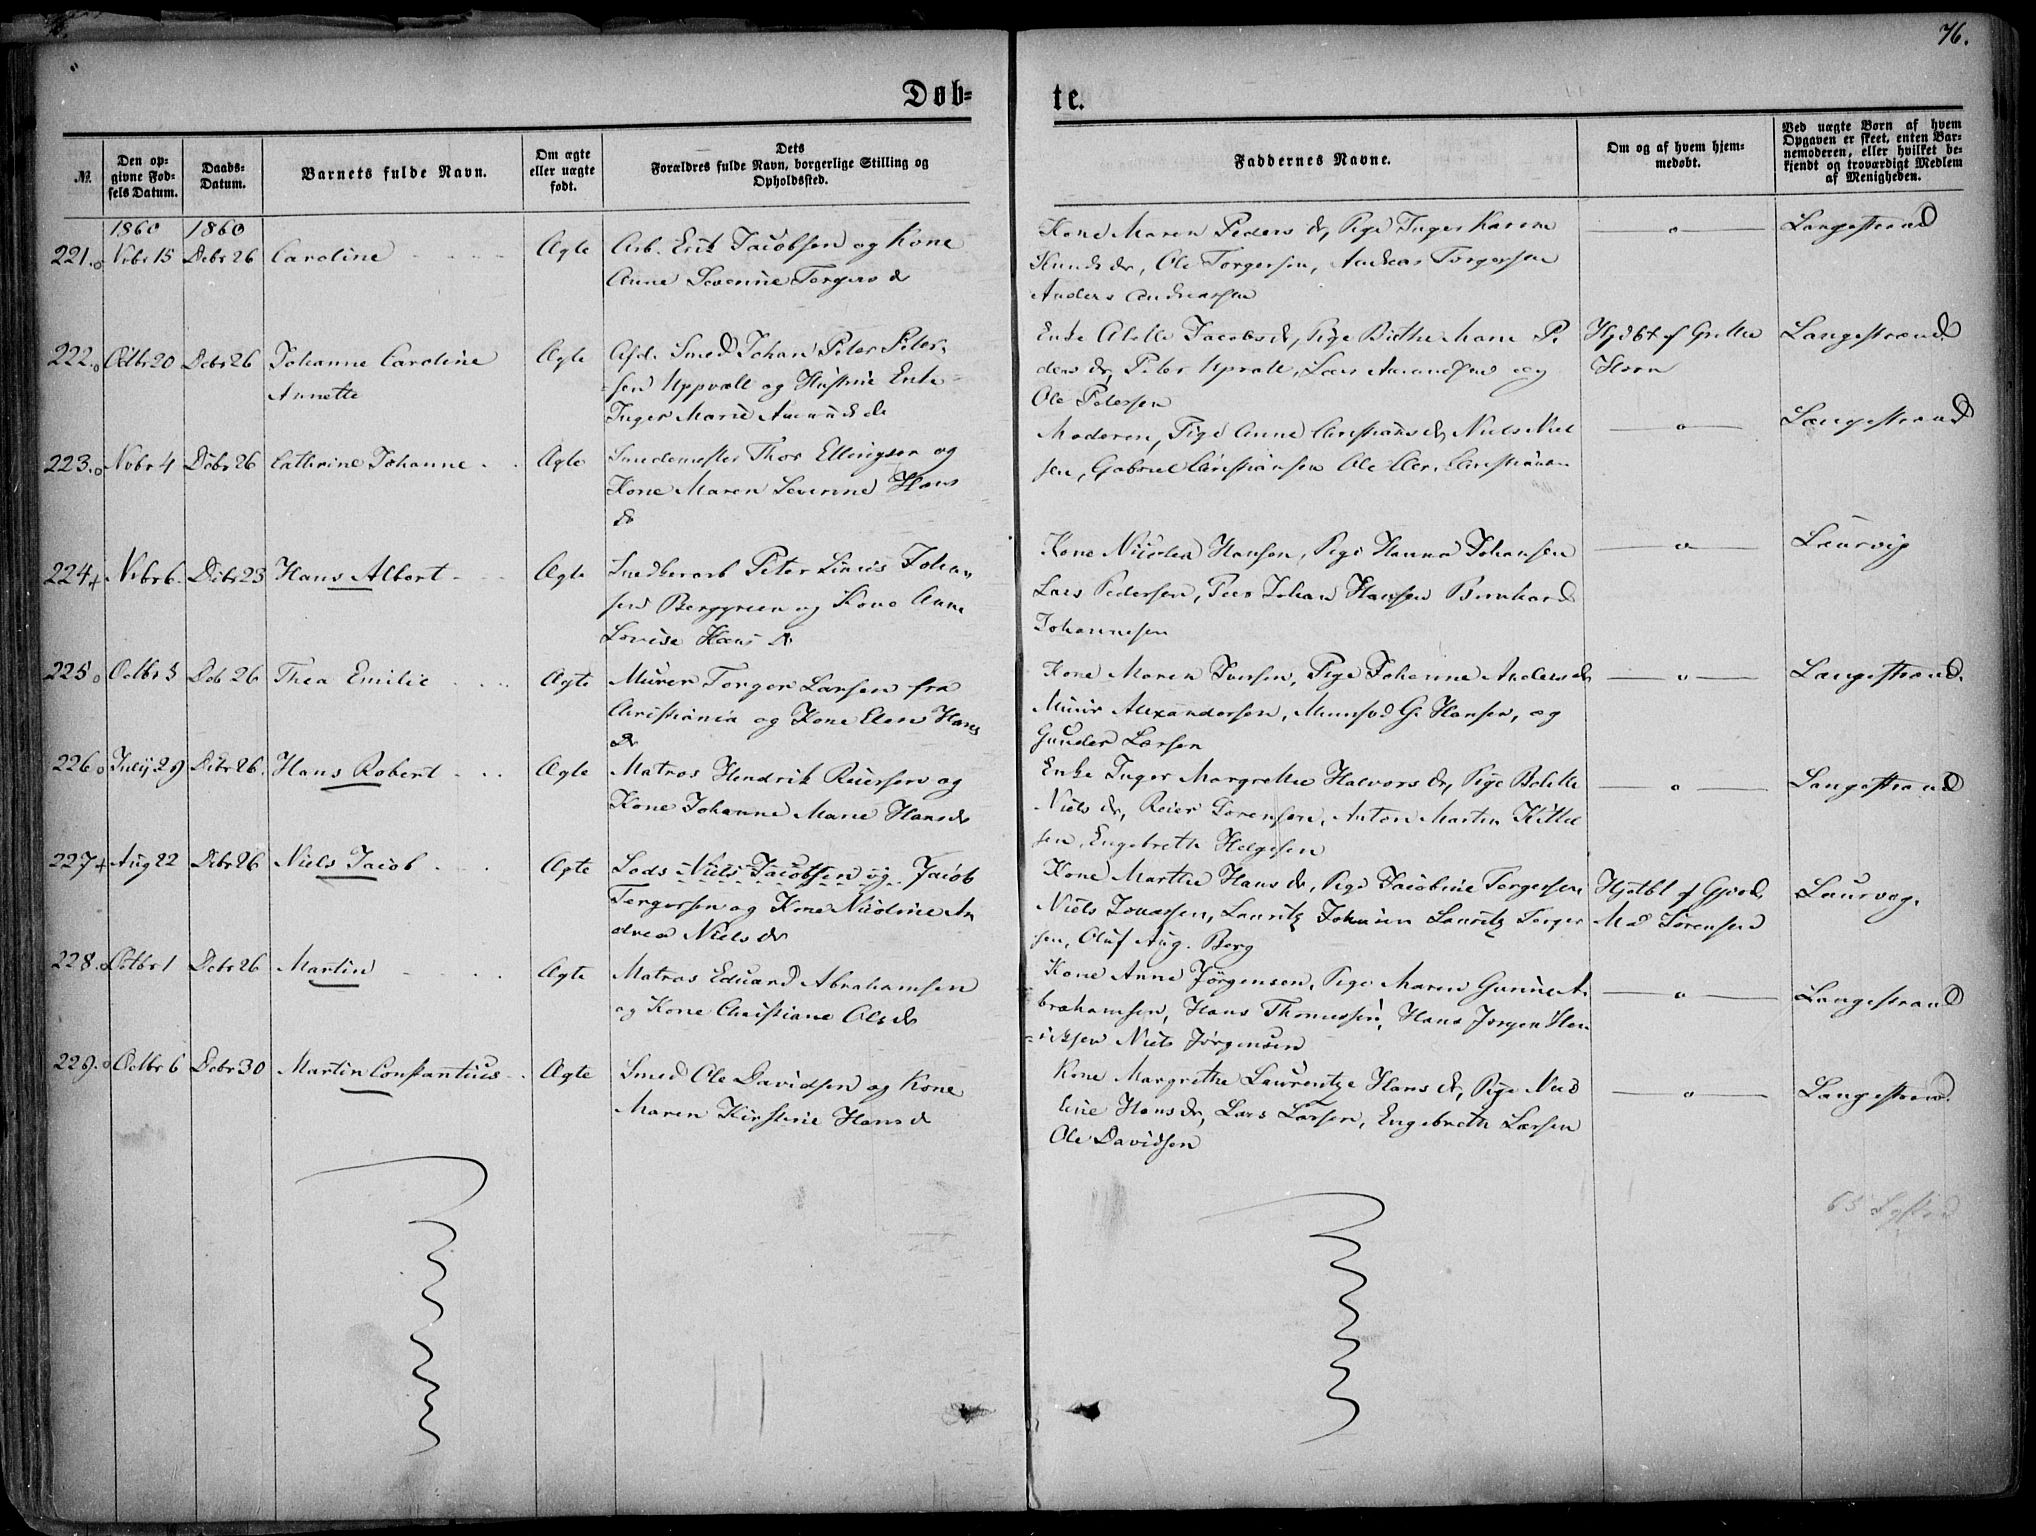 76.
Døb=
te.
№.
Den op=
givne Fød=
sels Datum.
Daabs=
Datum.
Barnets fulde Navn.
Om ægte
eller uægte
født.
Dets
Forældres fulde Navn, borgerlige Stilling og
Opholdssted.
Faddernes Navne.
Om og af hvem hjem=
medøbt.
Ved uægte Børn af hvem
Opgaven er skeet, enten Bar=
nemoderen, eller hvilket be=
kjendt og troværdigt Medlem
af Menigheden.
1860 1860
221. Nvbr 15 Dcbr 26 Caroline Ægte Arb. Erik Jacobsen og Kone
Anne Severine Torgersd
Kone Maren Pedersdr, Pige Inger Karine
Knudsdr, Ole Torgersen, Andreas Torgersen
Anders Andreassen
Langestrand
222. Octbr 20 Dcbr 26 Johanne Caroline
Annette
Ægte Afd. Smed Johan Peter Peter=
sen Uppvall og Hustrue Enke
Inger Marie Amundsdr
Enke Abelle Jacobsd, Pige Birthe Marie P
dersdr, Peter Upvall, Lars Amundsen og
Ole Pedersen
Hjdbt af Grethe
Horn
Langestrand
223. Nvbr 4 Dcbr 26 Cathrine Johanne Ægte Smedemester Thor Ellingsen og
Kone Maren Severine Hans
dr
Moderen, Pige Anne Christiansdr, Niels Niel
sen, Gabriel Christiansen Ole Chr. Christiansen
Langestrand
224 Nvbr 6 Dcbr 23 Hans Albert Ægte Snedkerarb Peter Linius Johan
sen Berggreen og Kone Anne
Lovise Hansdr
Kone Nicolea Hansen, Pige Hanna Johansen
Lars Pedersen, Peer Johan Hansen Bernhard
Johannesen
Laurvig
225 Octbr 3 Dcb 26 Thea Emilie Ægte Murer Torger Larsen fra
Christiania og Kone Elen Hans
dr
Kone Maren Jensen, Pige Johanne Andersdr
Murer Alexandersen, Mumsvd G. Hansen, og
Gunder Larsen
Langestrand.
226 July 29 Dcbr 26. Hans Robert Ægte Matros Hendrik Reiersen og
Kone Johanne Marie Hansdr
Enke Inger Margrethe Halvorsdr, Pige Bolette
Nielsdr, Reier Sørensen, Anton Martin Kittel
sen, Engebreth Helgesen
Langestrand
227 Aug 22 Dcbr 26 Niels Jacob Ægte Lods Niels Jacobsen og Jacob
Torgersen og Kone Nicoline An
drea Nielsdr
Kone Marthe Hansdr, Pige Jacobine Torgersen,
Niels Jonassen, Lauritz Johnsen Lauritz Torger
sen, Oluf Aug. Berg
Hjdbt af Gjord.
Md Sørensen
Laurvig.
228. Octbr 1 Dcbr 26 Martin Ægte Matros Eduard Abrahamsen
og Kone Christiane Olsdr
Kone Anne Jørgensen, Pige Maren Gunine A.
brahamsen, Hans Thomessen, Hans Jørgen Hen
=riksen Niels Jørgensen
Langestrand
229. Octbr 6 Dcbr 30 Martin Constantius Ægte Smed Ole Davidsen og Kone
Maren Kirstine Hansd
Kone Margrethe Laurentze Hansdr, Pige Nico
line Hansdr, Lars Larsen, Engebreth Larsen
Ole Davidsen
Langestrand.